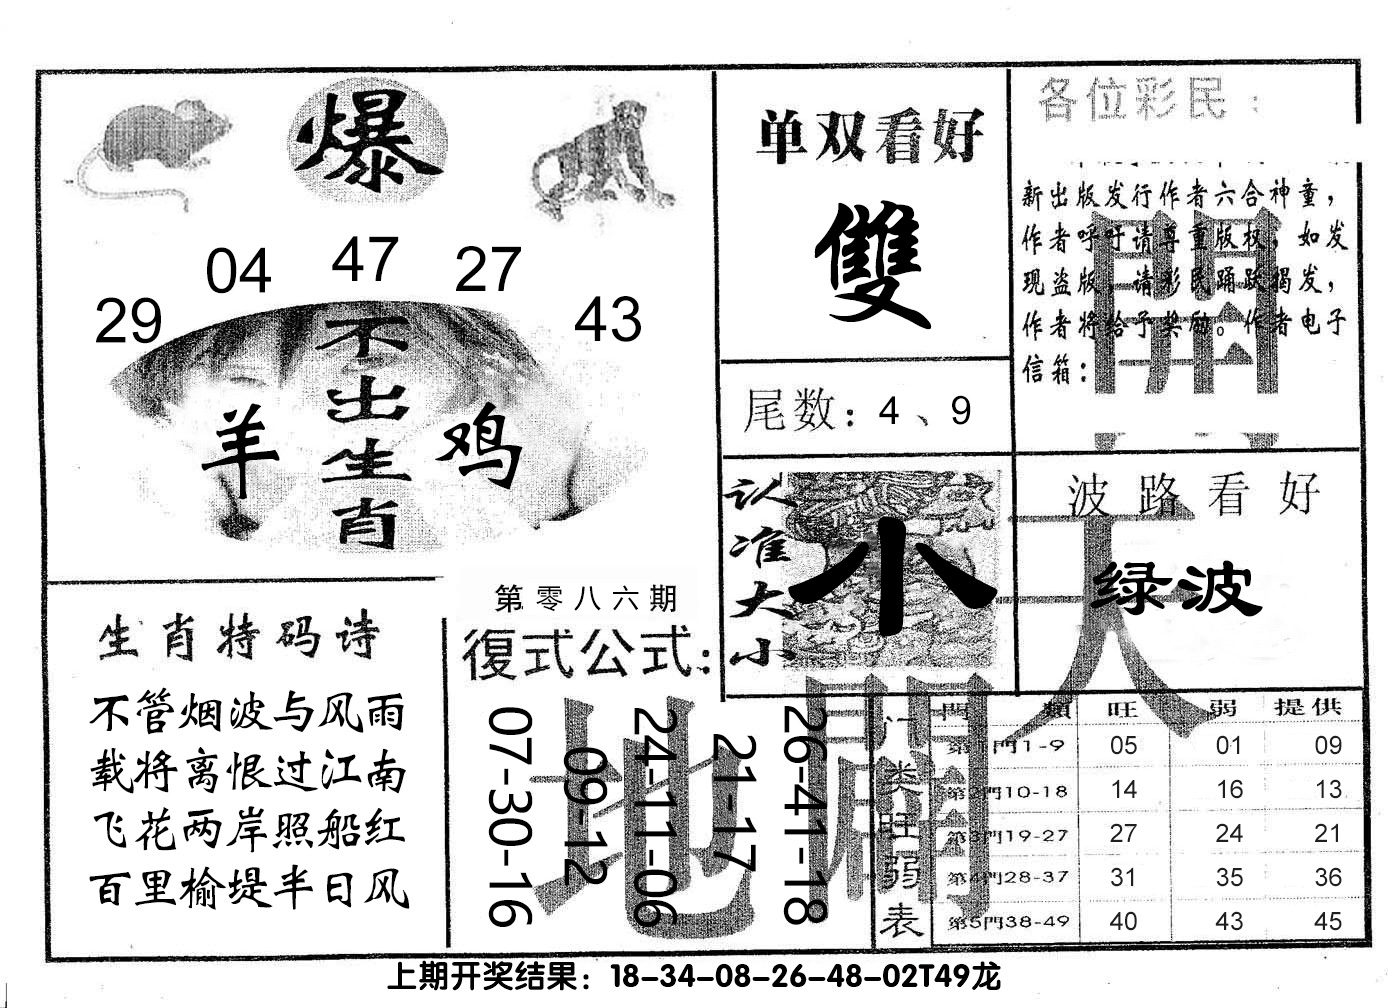 爆
04 47 27
29 43
不出生肖
羊 鸡
单双看好
雙
尾数：4、9
各位彩民：
新出版发行作者六合神童，
作者呼吁请尊重版权，如发
现盗版，请彩民踊跃揭发，
作者将给予奖励。作者电子
信箱：
认准大小
小
波路看好
绿波
生肖特码诗
不管烟波与风雨
载将离恨过江南
飞花两岸照船红
百里榆堤半日风
第零八六期
復式公式：
07-30-16
09-12
24-11-06
21-17
26-41-18
天
地
門类旺弱表
門類 旺 弱 提供
第1門1-9 05 01 09
第2門10-18 14 16 13
第3門19-27 27 24 21
第4門28-37 31 35 36
第5門38-49 40 43 45
上期开奖结果：18-34-08-26-48-02T49龙